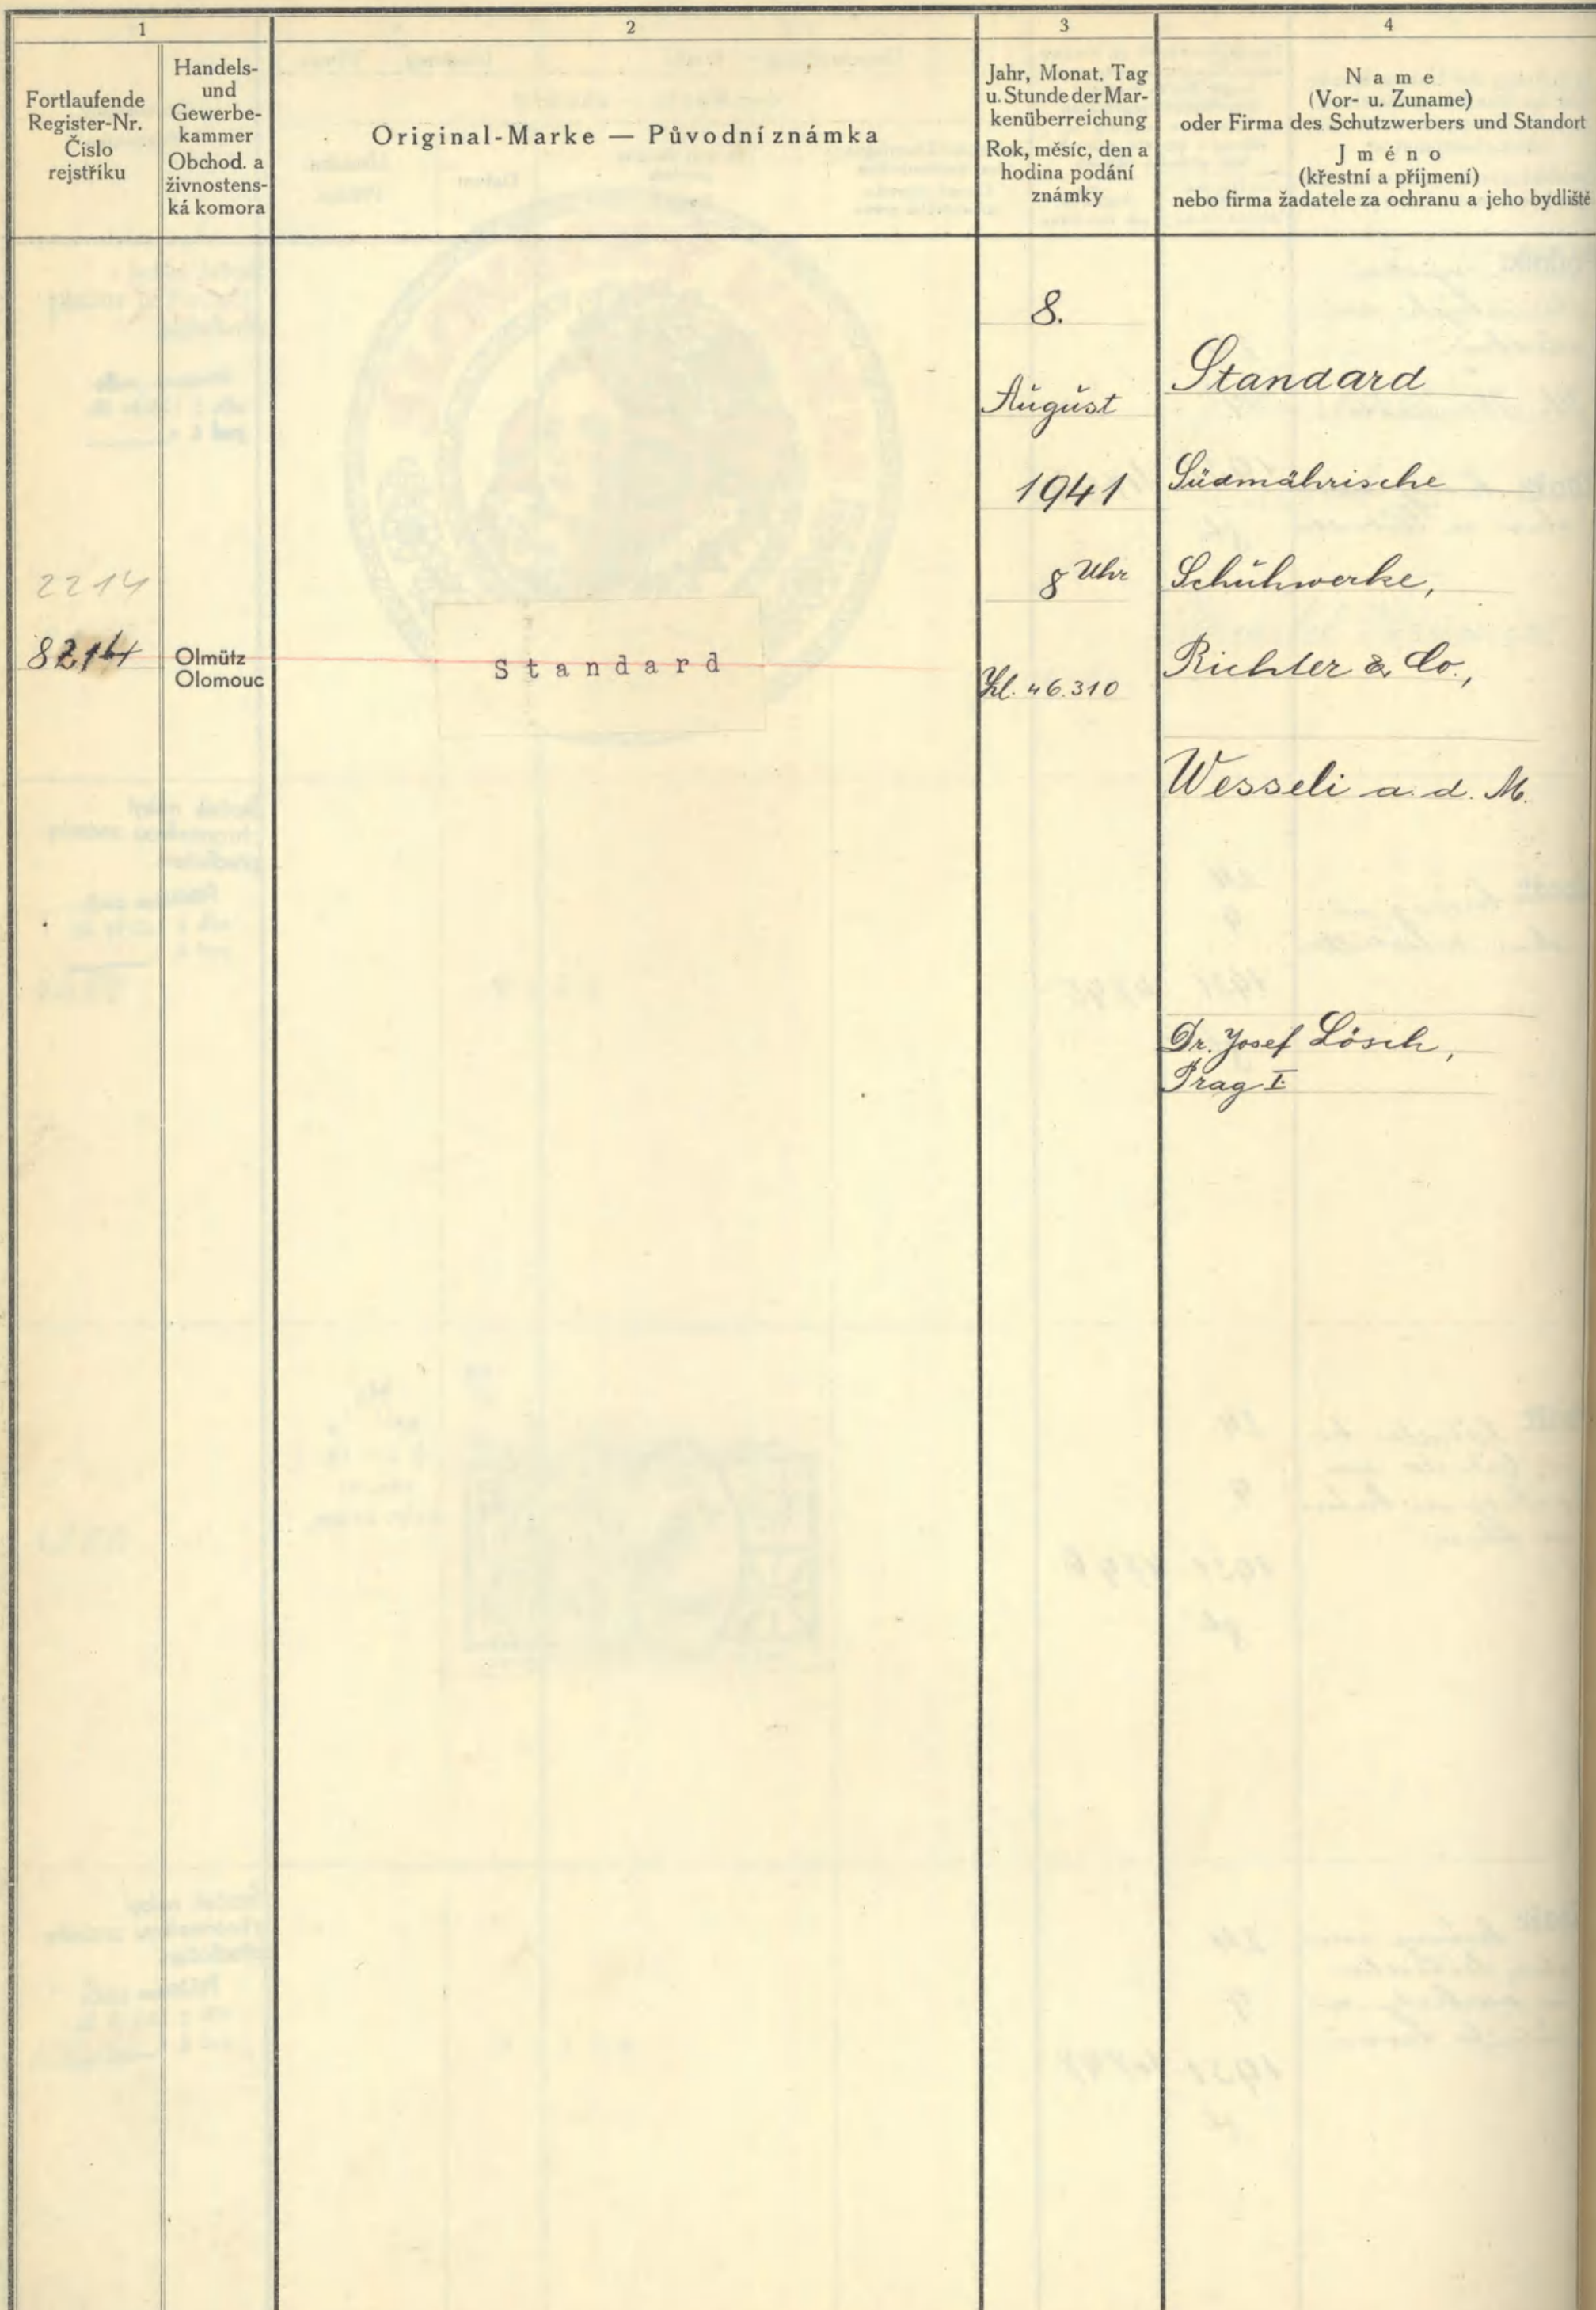 1
2
3
4
Fortlaufende
Register-Nr.
Číslo
rejstříku
Handels-
und
Gewerbe-
kammer
Obchod. a
živnostens-
ká komora
Original-Marke — Původní známka
Jahr, Monat, Tag
u. Stunde der Mar-
kenüberreichung
Rok, měsíc, den a
hodina podání
známky
Name
(Vor- u. Zuname)
oder Firma des Schutzwerbers und Standort
Jméno
(křestní a příjmení)
nebo firma žadatele za ochranu a jeho bydliště
2214
8214
Olmütz
Olomouc
Standard
8.
August
1941
8 Uhr
Zl. 46.310
Standard
Südmährische
Schuhwerke,
Richter & Co.,
Wesseli a. d. M.
Dr. Josef Lösch,
Prag I.